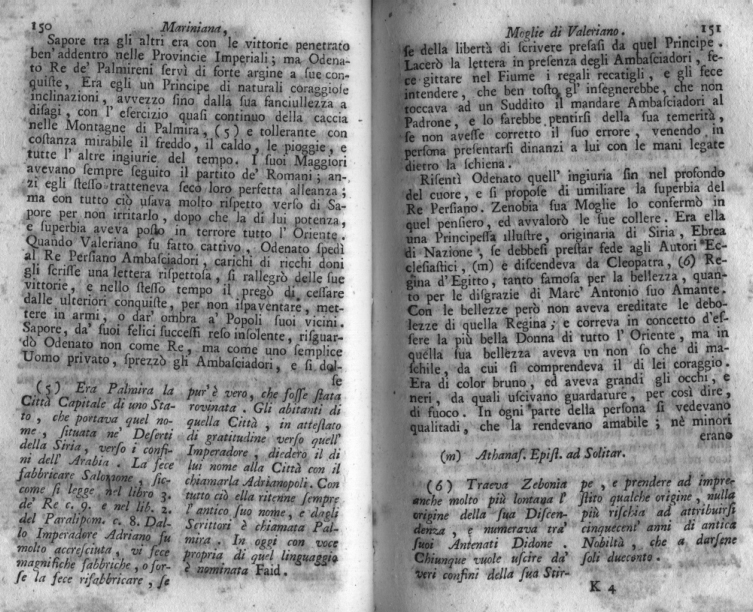 150 Mariniana,
Sapore tra gli altri era con le vittorie penetrato
ben' addentro nelle Provincie Imperiali; ma Odena-
to Re de' Palmireni servì di forte argine a sue con-
quiste, Era egli un Principe di naturali coraggiose
inclinazioni, avvezzo sino dalla sua fanciullezza a
disagi, con l' esercizio quasi continuo della caccia
nelle Montagne di Palmira, (5) e tollerante con
costanza mirabile il freddo, il caldo, le pioggie, e
tutte l' altre ingiurie del tempo. I suoi Maggiori
avevano sempre seguito il partito de' Romani; an-
zi egli stesso tratteneva seco loro perfetta alleanza;
ma con tutto ciò usava molto rispetto verso di Sa-
pore per non irritarlo, dopo che la di lui potenza,
e superbia aveva posto in terrore tutto l' Oriente.
Quando Valeriano fu fatto cattivo, Odenato spedì
al Re Persiano Ambasciadori, carichi di ricchi doni
gli scrisse una lettera rispettosa, si rallegrò delle sue
vittorie, e nello stesso tempo il pregò di cessare
dalle ulteriori conquiste, per non ispaventare, met-
tere in armi, o dar' ombra a' Popoli suoi vicini.
Sapore, da' suoi felici successi reso insolente, risguar-
dò Odenato non come Re, ma come uno semplice
Uomo privato, sprezzò gli Ambasciadori, e si dol-
se
(5) Era Palmira la
Città Capitale di uno Sta-
to, che portava quel no-
me, situata ne' Deserti
della Siria, verso i confi-
ni dell' Arabia. La fece
fabbricare Salomone, sic-
come si legge nel libro 3.
de' Re c. 9. e nel lib. 2.
del Paralipom. c. 8. Dal-
lo Imperadore Adriano fu
molto accresciuta, vi fece
magnifiche fabbriche, o for-
se la fece rifabbricare, se
pur' è vero, che fosse stata
rovinata. Gli abitanti di
quella Città, in attestato
di gratitudine verso quell'
Imperadore, diedero il di
lui nome alla Città con il
chiamarla Adrianopoli. Con
tutto ciò ella ritenne sempre
l' antico suo nome, e dagli
Scrittori è chiamata Pal-
mira. In oggi con voce
propria di quel linguaggio
è nominata Faid.
Moglie di Valeriano. 151
se della libertà di scrivere presasi da quel Principe.
Lacerò la lettera in presenza degli Ambasciadori, fe-
ce gittare nel Fiume i regali recatigli, e gli fece
intendere, che ben tosto gl' insegnerebbe, che non
toccava ad un Suddito il mandare Ambasciadori al
Padrone, e lo farebbe pentirsi della sua temerità,
se non avesse corretto il suo errore, venendo in
persona presentarsi dinanzi a lui con le mani legate
dietro la schiena.
Risentì Odenato quell' ingiuria sin nel profondo
del cuore, e si propose di umiliare la superbia del
Re Persiano. Zenobia sua Moglie lo confermò in
quel pensiero, ed avvalorò le sue collere. Era ella
una Principessa illustre, originaria di Siria, Ebrea
di Nazione, se debbesi prestar fede agli Autori Ec-
clesiastici, (m) e discendeva da Cleopatra, (6) Re-
gina d'Egitto, tanto famosa per la bellezza, quan-
to per le disgrazie di Marc' Antonio suo Amante.
Con le bellezze però non aveva ereditate le debo-
lezze di quella Regina; e correva in concetto d'es-
sere la più bella Donna di tutto l' Oriente, ma in
quella sua bellezza aveva un non so che di ma-
schile, da cui si comprendeva il di lei coraggio.
Era di color bruno, ed aveva grandi gli occhi, e
neri, da quali uscivano guardature, per così dire,
di fuoco. In ogni parte della persona si vedevano
qualitadi, che la rendevano amabile; nè minori
erano
(m) Athanas. Epist. ad Solitar.
(6) Traeva Zebonia
anche molto più lontana l'
origine della sua Discen-
denza, e numerava tra'
suoi Antenati Didone.
Chiunque vuole uscire da'
veri confini della sua Stir-
pe, e prendere ad impre-
stito qualche origine, nulla
più rischia ad attribuirsi
cinquecent' anni di antica
Nobiltà, che a darsene
soli duecento.
K 4